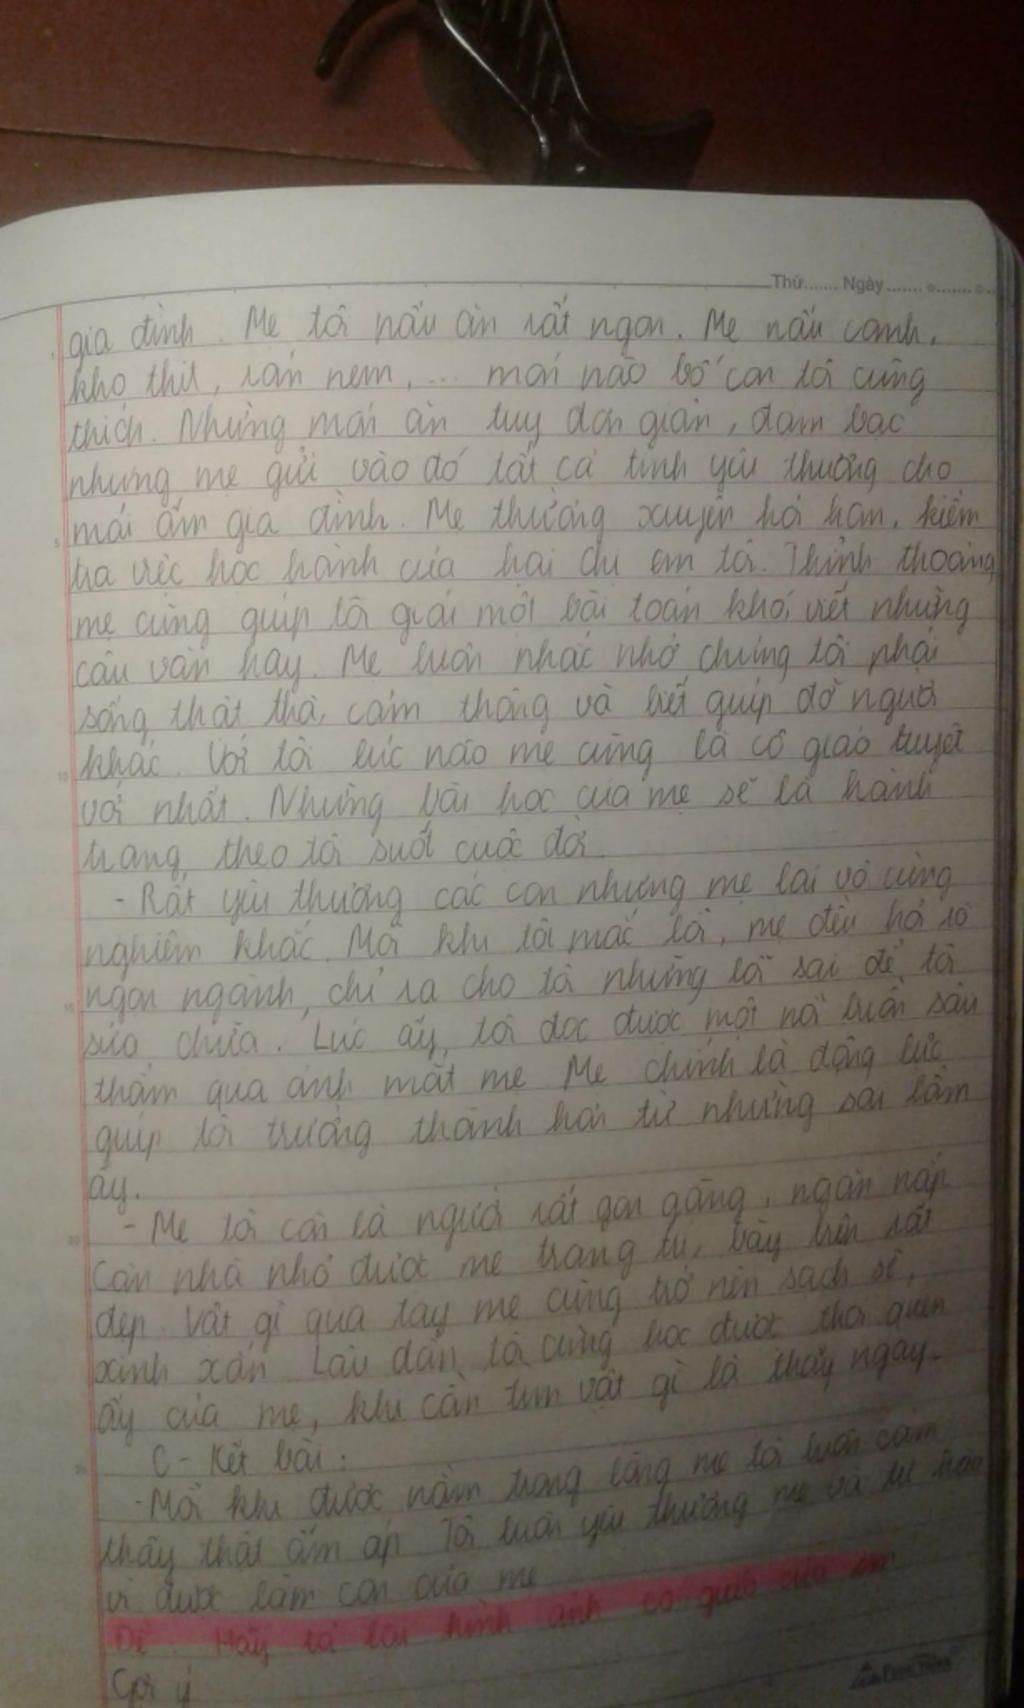 Thứ....... Ngày.......
gia đình. Mẹ tôi nấu ăn rất ngon. Mẹ nấu canh,
kho thịt, rán nem, ... món nào bố con tôi cũng
thích. Những món ăn tuy đơn giản, đạm bạc
nhưng mẹ gửi vào đó tất cả tình yêu thương cho
mái ấm gia đình. Mẹ thường xuyên hỏi han, kiểm
tra việc học hành của hai chị em tôi. Thỉnh thoảng
mẹ cũng giúp tôi giải một bài toán khó, viết những
câu văn hay. Mẹ luôn nhắc nhở chúng tôi phải
sống thật thà, cảm thông và biết giúp đỡ người
khác. Với tôi lúc nào mẹ cũng là cô giáo tuyệt
vời nhất. Những bài học của mẹ sẽ là hành
trang theo tôi suốt cuộc đời.
- Rất yêu thương các con nhưng mẹ lại vô cùng
nghiêm khắc. Mỗi khi tôi mắc lỗi, mẹ đều hỏi rõ
ngọn ngành, chỉ ra cho tôi những lỗi sai để tôi
sửa chữa. Lúc ấy, tôi đọc được một nỗi buồn sâu
thẳm qua ánh mắt mẹ. Mẹ chính là động lực
giúp tôi trưởng thành hơn từ những sai lầm
ấy.
- Mẹ tôi còn là người rất gọn gàng, ngăn nắp.
Căn nhà nhỏ được mẹ trang trí, bày biện rất
đẹp. Vật gì qua tay mẹ cũng trở nên sạch sẽ,
xinh xắn. Lâu dần, tôi cũng học được thói quen
ấy của mẹ, khi cần tìm vật gì là thấy ngay.
C - Kết bài:
- Mỗi khi được nằm trong lòng mẹ tôi luôn cảm
thấy thật ấm áp. Tôi luôn yêu thương mẹ và tự hào
vì được làm con của mẹ
Đề: Hãy tả lại hình ảnh cô giáo của em
Gợi ý